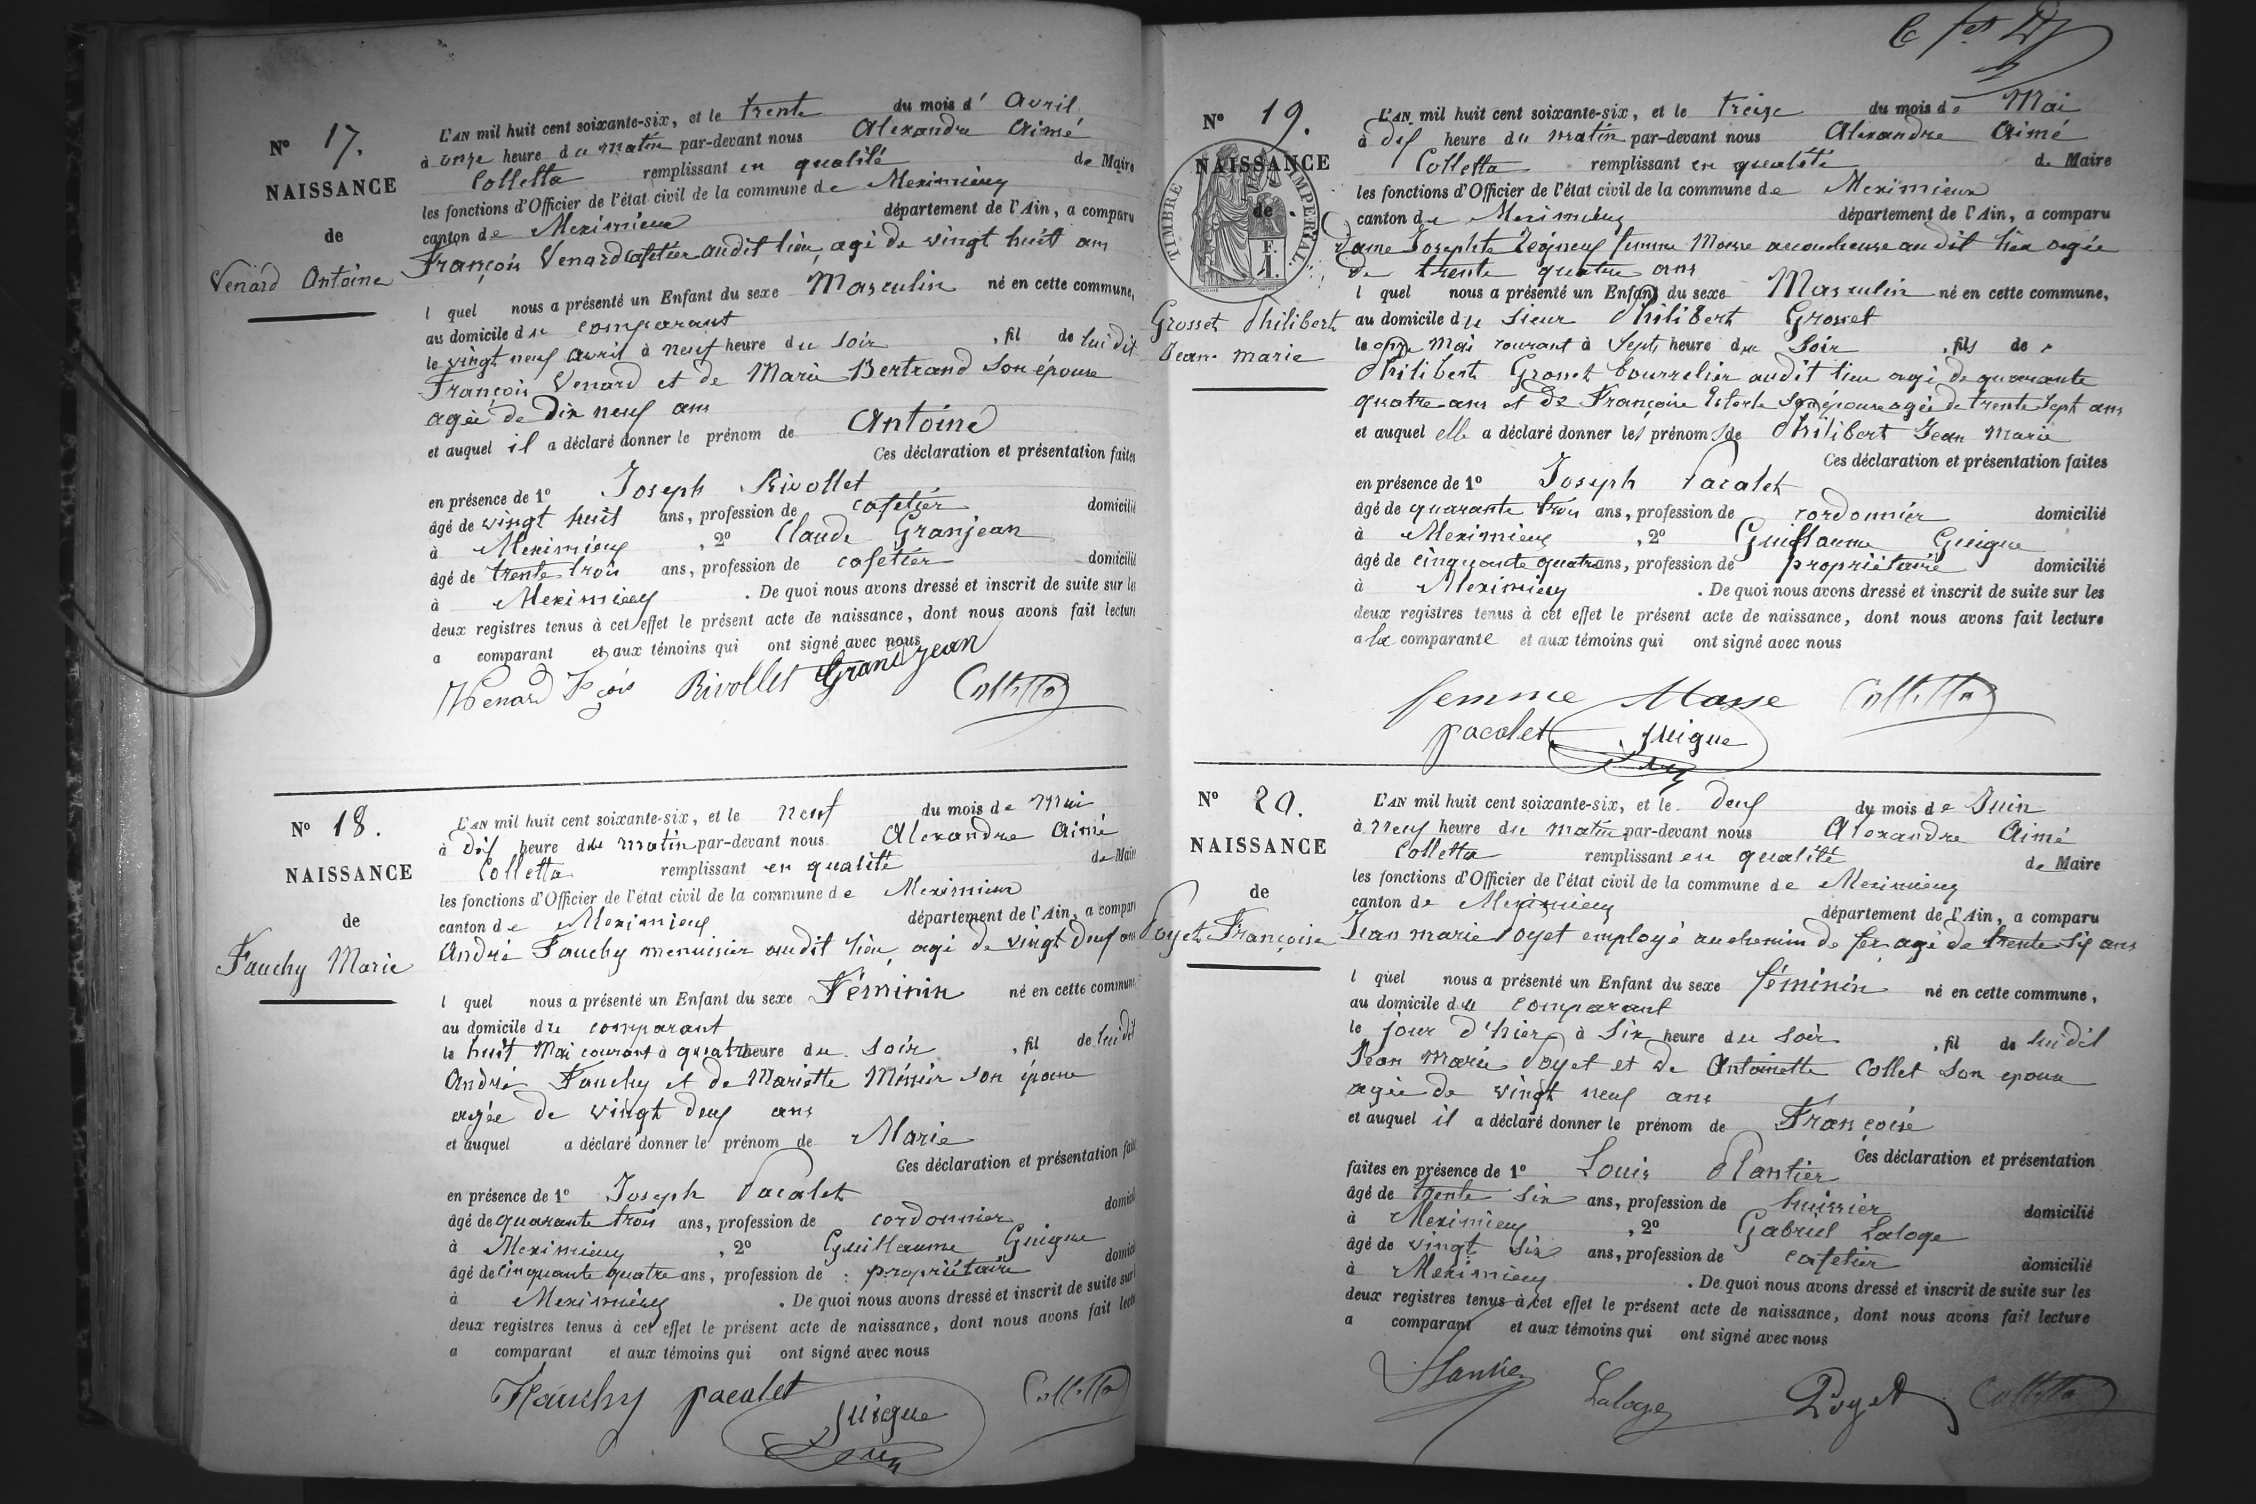 Nº 17.
NAISSANCE
de
Venard Antoine
L'AN mil huit cent soixante-six, et le trente du mois d' Avril
à onze heure du matin par-devant nous Alexandre Aimé
Colletta remplissant en qualité de Maire
les fonctions d'Officier de l'état civil de la commune de Meximieux
canton de Meximieux département de l'Ain, a comparu
François Venard cafetier audit lieu, agé de vingt huit ans
l quel nous a présenté un Enfant du sexe Masculin né en cette commune,
au domicile du comparant
le vingt neuf avril à neuf heure du soir , fil de lui dit
François Venard et de Marie Bertrand son épouse
agée de Dix neuf ans
et auquel il a déclaré donner le prénom de Antoine
Ces déclaration et présentation faites
en présence de 1º Joseph Rivollet
âgé de vingt huit ans, profession de cafetier domicilié
à Meximieux , 2º Claude Granjean
âgé de trente trois ans, profession de cafetier domicilié
à Meximieux . De quoi nous avons dressé et inscrit de suite sur les
deux registres tenus à cet effet le présent acte de naissance, dont nous avons fait lecture
a comparant et aux témoins qui ont signé avec nous
Venard Fçois Rivollet Grandjean Colletta
Nº 18.
NAISSANCE
de
Fauchy Marie
L'AN mil huit cent soixante-six, et le neuf du mois de Mai
à dix heure du matin par-devant nous Alexandre Aimé
Colletta remplissant en qualité de Maire
les fonctions d'Officier de l'état civil de la commune de Meximieux
canton de Meximieux département de l'Ain, a comparu
André Fauchy menuisier audit lieu, agé de vingt deux ans
l quel nous a présenté un Enfant du sexe Féminin né en cette commune
au domicile du comparant
le huit Mai courant à quatre heure du soir , fil de lui dit
André Fauchy et de Mariette Messier son épouse
agée de vingt deux ans
et auquel a déclaré donner le prénom de Marie
Ces déclaration et présentation faites
en présence de 1º Joseph Pacalet
âgé de quarante trois ans, profession de cordonnier domicilié
à Meximieux , 2º Guillaume Guigue
âgé de cinquante quatre ans, profession de propriétaire domicilié
à Meximieux . De quoi nous avons dressé et inscrit de suite sur
deux registres tenus à cet effet le présent acte de naissance, dont nous avons fait lecture
a comparant et aux témoins qui ont signé avec nous
Fauchy pacalet Guigue Colletta
Nº 19.
NAISSANCE
de
TIMBRE IMPERIAL
F.
1.
Grosset Philibert
Jean marie
L'AN mil huit cent soixante-six, et le treize du mois de Mai
à dix heure du matin par-devant nous Alexandre Aimé
Colletta remplissant en qualité de Maire
les fonctions d'Officier de l'état civil de la commune de Meximieux
canton de Meximieux département de l'Ain, a comparu
Dame Josephte femme Masse accoucheuse audit lieu agée
de trente quatre ans
l quel nous a présenté un Enfant du sexe Masculin né en cette commune,
au domicile du sieur Philibert Grosset
le onze Mai courant à Sept heure du Soir , fils de
Philibert Grosset bourrelier audit lieu agé de quarante
quatre ans et de Françoise son épouse agée de trente sept ans
et auquel elle a déclaré donner les prénoms de Philibert Jean Marie
Ces déclaration et présentation faites
en présence de 1º Joseph Pacalet
âgé de quarante trois ans, profession de cordonnier domicilié
à Meximieux , 2º Guillaume Guigue
âgé de cinquante quatre ans, profession de propriétaire domicilié
à Meximieux . De quoi nous avons dressé et inscrit de suite sur les
deux registres tenus à cet effet le présent acte de naissance, dont nous avons fait lecture
a la comparante et aux témoins qui ont signé avec nous
femme Masse Colletta
pacalet Guigue
Nº 20.
NAISSANCE
de
Poyet Françoise
L'AN mil huit cent soixante-six, et le deux du mois de Juin
à neuf heure du matin par-devant nous Alexandre Aimé
Colletta remplissant en qualité de Maire
les fonctions d'Officier de l'état civil de la commune de Meximieux
canton de Meximieux département de l'Ain, a comparu
Jean marie Poyet employé au chemin de fer, agé de trente six ans
l quel nous a présenté un Enfant du sexe féminin né en cette commune,
au domicile du comparant
le jour d'hier à six heure du soir , fil de lui dit
Jean Marie Poyet et de Antoinette Collet son epouse
agée de vingt neuf ans
et auquel il a déclaré donner le prénom de Françoise
Ces déclaration et présentation
faites en présence de 1º Louis Plantier
âgé de trente six ans, profession de huissier domicilié
à Meximieux , 2º Gabriel Laloge
âgé de vingt six ans, profession de cafetier domicilié
à Meximieux . De quoi nous avons dressé et inscrit de suite sur les
deux registres tenus à cet effet le présent acte de naissance, dont nous avons fait lecture
a comparant et aux témoins qui ont signé avec nous
Plantier Laloge Poyet Colletta